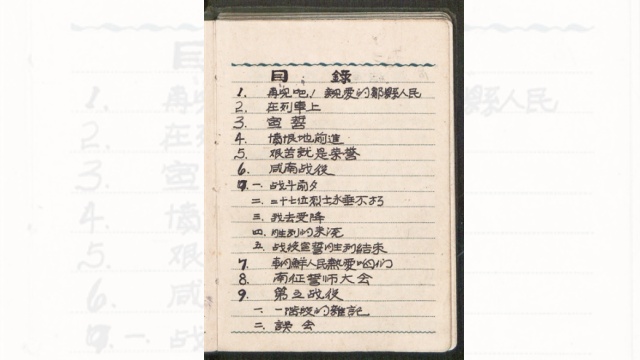 目 錄
1. 再见吧！親愛的鄒縣人民
2. 在列車上
3. 宣誓
4. 憤恨地前進
5. 艰苦就是荣誉
6. 咸南战役
一、战斗前夕
二、二十七位烈士永垂不朽
三、我去受降
四、胜利的来
五、战役宣誓胜利結束
7. 朝鮮人民熱愛咱们
8. 南征誓师大会
9. 第五战役
一、一階段的雜記
二、誤会